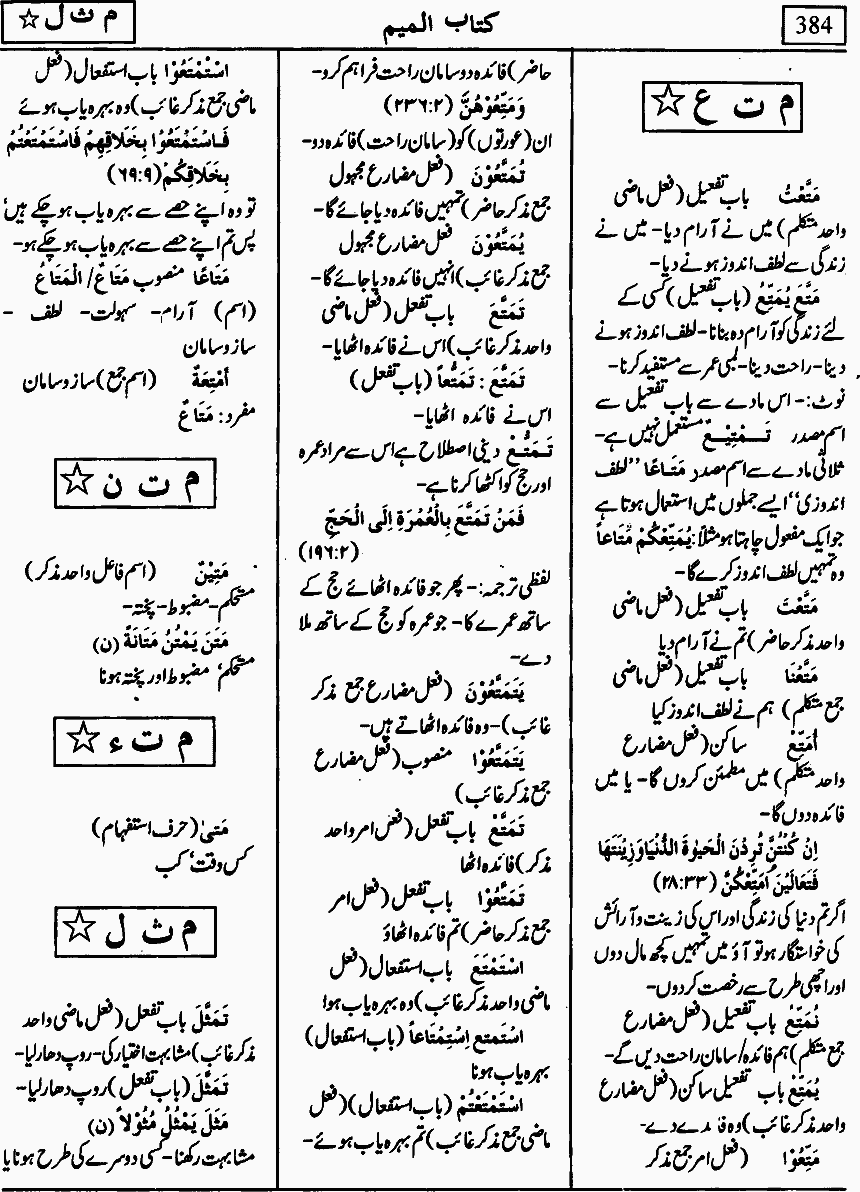 384
کتاب المیم
م ث ل ☆
م ت ع ☆
مَتَّعْتُ باب تفعیل (فعل ماضی
واحد متکلم) میں نے آرام دیا- میں نے
زندگی سے لطف اندوز ہونے دیا-
مَتَّعَ يُمَتِّعُ (باب تفعیل) کسی کے
لئے زندگی کو آرام دہ بنانا- لطف اندوز ہونے
دینا- راحت دینا- لمبی عمر سے مستفید کرنا-
نوٹ:- اس مادے سے باب تفعیل سے
اسم مصدر تَمْتِيْعٌ مستعمل نہیں ہے-
ثلاثی مادے سے اسم مصدر مَتَاعًا ’’لطف
اندوزی‘‘ ایسے جملوں میں استعمال ہوتا ہے
جو ایک مفعول چاہتا ہو مثلاً: يُمَتِّعْكُمْ مَّتَاعاً
وہ تمہیں لطف اندوز کرے گا-
مَتَّعْتَ باب تفعیل (فعل ماضی
واحد مذکر حاضر) تم نے آرام دیا
مَتَّعْنَا باب تفعیل (فعل ماضی
جمع متکلم) ہم نے لطف اندوز کیا
أُمَتِّعْ ساکن (فعل مضارع
واحد متکلم) میں مطمئن کروں گا- یا میں
فائدہ دوں گا-
اِنْ كُنْتُنَّ تُرِدْنَ الْحَيٰوةَ الدُّنْيَا وَزِيْنَتَهَا
فَتَعَالَيْنَ اُمَتِّعْكُنَّ (۲۸:۳۳)
اگر تم دنیا کی زندگی اور اس کی زینت و آرائش
کی خواستگار ہو تو آؤ میں تمہیں کچھ مال دوں
اور اچھی طرح سے رخصت کردوں-
نُمَتِّعُ باب تفعیل (فعل مضارع
جمع متکلم) ہم فائدہ/ سامان راحت دیں گے-
يُمَتِّعْ باب تفعیل ساکن (فعل مضارع
واحد مذکر غائب) وہ فائدے دے-
مَتِّعُوْا (فعل امر جمع مذکر
حاضر) فائدہ دو سامان راحت فراہم کرو-
وَمَتِّعُوْهُنَّ (۲۳۶:۲)
ان (عورتوں) کو (سامان راحت) فائدہ دو-
تُمَتَّعُوْنَ (فعل مضارع مجہول
جمع مذکر حاضر) تمہیں فائدہ دیا جائے گا-
يُمَتَّعُوْنَ فعل مضارع مجہول
جمع مذکر غائب) انہیں فائدہ دیا جائے گا-
تَمَتَّعَ باب تفعل (فعل ماضی
واحد مذکر غائب) اس نے فائدہ اٹھایا-
تَمَتَّعَ: تَمَتُّعاً (باب تفعل)
اس نے فائدہ اٹھایا-
تَمَتُّعْ دینی اصطلاح ہے اس سے مراد عمرہ
اور حج کو اکٹھا کرنا ہے-
فَمَنْ تَمَتَّعَ بِالْعُمْرَةِ اِلَى الْحَجِّ
(۱۹۶:۲)
لفظی ترجمہ:- پھر جو فائدہ اٹھائے حج کے
ساتھ عمرے کا- جو عمرہ کو حج کے ساتھ ملا
دے-
يَتَمَتَّعُوْنَ (فعل مضارع جمع مذکر
غائب)- وہ فائدہ اٹھاتے ہیں-
يَتَمَتَّعُوْا منصوب (فعل مضارع
جمع مذکر غائب)
تَمَتَّعْ باب تفعل (فعل امر واحد
مذکر) فائدہ اٹھا
تَمَتَّعُوْا باب تفعل (فعل امر
جمع مذکر حاضر) تم فائدہ اٹھاؤ
اسْتَمْتَعَ باب استفعال (فعل
ماضی واحد مذکر غائب) وہ بہرہ یاب ہوا
اسْتَمتع اِسْتِمْتَاعاً (باب استفعال)
بہرہ یاب ہونا
اسْتَمْتَعْتُمْ (باب استفعال) (فعل
ماضی جمع مذکر غائب) تم بہرہ یاب ہوئے-
اسْتَمْتَعُوْا باب استفعال (فعل
ماضی جمع مذکر غائب) وہ بہرہ یاب ہوئے
فَاسْتَمْتَعُوْا بِخَلَاقِهِمْ فَاسْتَمْتَعْتُمْ
بِخَلَاقِكُمْ (۶۹:۹)
تو وہ اپنے حصے سے بہرہ یاب ہو چکے ہیں‘
پس تم اپنے حصے سے بہرہ یاب ہو چکے ہو-
مَتَاعًا منصوب مَتَاعَ/ الْمَتَاعُ
(اسم) آرام- سہولت- لطف -
ساز و سامان
أَمْتِعَةٌ (اسم جمع) ساز و سامان
مفرد: مَتَاعٌ
م ت ن ☆
مَتِيْنٌ (اسم فاعل واحد مذکر)
مستحکم- مضبوط- پختہ-
مَتَنَ يَمْتُنُ مَتَانَةً (ن)
مستحکم‘ مضبوط اور پختہ ہونا
م ت ء ☆
مَتىٰ (حرف استفہام)
کس وقت‘ کب
م ث ل ☆
تَمَثَّلَ باب تفعل (فعل ماضی واحد
مذکر غائب) مشابہت اختیار کی- روپ دھار لیا-
تَمَثَّلَ (باب تفعل) روپ دھار لیا-
مَثَلَ يَمْثُلُ مُثُوْلاً (ن)
مشابہت رکھنا- کسی دوسرے کی طرح ہونا یا